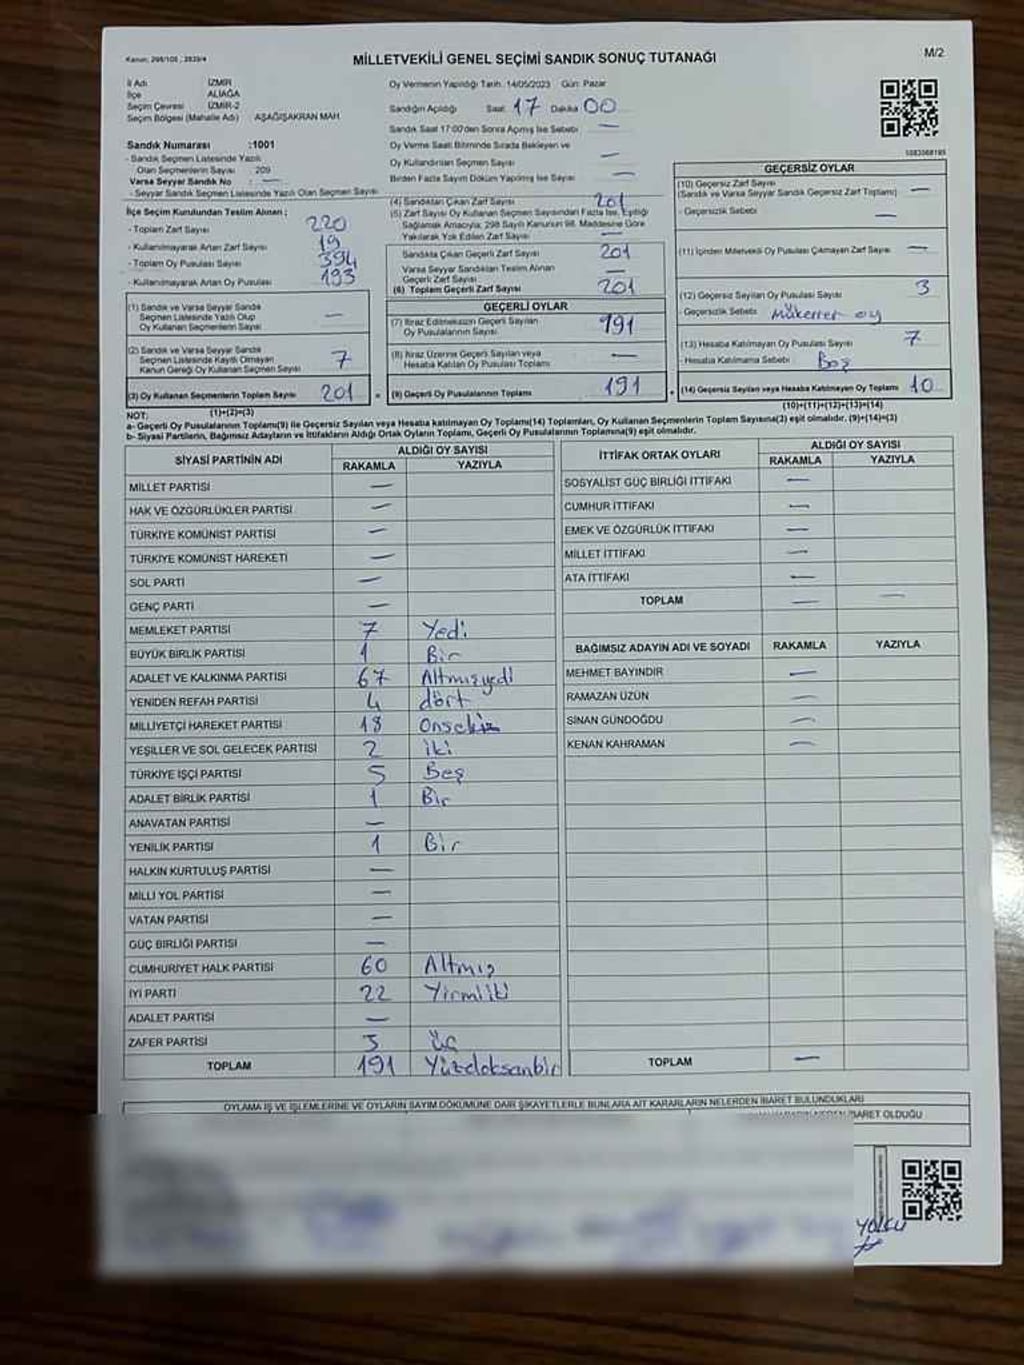 Kanun: 298/105, 2839/4
MİLLETVEKİLİ GENEL SEÇİMİ SANDIK SONUÇ TUTANAĞI
M/2
İl Adı İZMİR
İlçe ALİAĞA
Seçim Çevresi İZMİR-2
Seçim Bölgesi (Mahalle Adı) : AŞAĞIŞAKRAN MAH
Sandık Numarası :1001
- Sandık Seçmen Listesinde Yazılı
Olan Seçmenlerin Sayısı 209
Varsa Seyyar Sandık No : —
- Seyyar Sandık Seçmen Listesinde Yazılı Olan Seçmen Sayısı
İlçe Seçim Kurulundan Teslim Alınan ;
- Toplam Zarf Sayısı 220
- Kullanılmayarak Artan Zarf Sayısı 19
- Toplam Oy Pusulası Sayısı 394
- Kullanılmayarak Artan Oy Pusulası 193
(1) Sandık ve Varsa Seyyar Sandık
Seçmen Listesinde Yazılı Olup
Oy Kullanan Seçmenlerin Sayısı —
(2) Sandık ve Varsa Seyyar Sandık
Seçmen Listesinde Kayıtlı Olmayan
Kanun Gereği Oy Kullanan Seçmen Sayısı 7
(3) Oy Kullanan Seçmenlerin Toplam Sayısı 201
(1)+(2)=(3)
Oy Vermenin Yapıldığı Tarih: 14/05/2023 Gün: Pazar
Sandığın Açıldığı Saat 17 Dakika 00
Sandık Saat 17:00'den Sonra Açılmış İse Sebebi —
Oy Verme Saati Bitiminde Sırada Bekleyen ve
Oy Kullandırılan Seçmen Sayısı —
Birden Fazla Sayım Döküm Yapılmış İse Sayısı —
(4) Sandıktan Çıkan Zarf Sayısı 201
(5) Zarf Sayısı Oy Kullanan Seçmen Sayısından Fazla İse, Eşitliği
Sağlamak Amacıyla, 298 Sayılı Kanunun 98. Maddesine Göre
Yakılarak Yok Edilen Zarf Sayısı —
Sandıkta Çıkan Geçerli Zarf Sayısı 201
Varsa Seyyar Sandıktan Teslim Alınan
Geçerli Zarf Sayısı —
(6) Toplam Geçerli Zarf Sayısı 201
GEÇERLİ OYLAR
(7) İtiraz Edilmeksizin Geçerli Sayılan
Oy Pusulasının Sayısı 191
(8) İtiraz Üzerine Geçerli Sayılan veya
Hesaba Katılan Oy Pusulası Toplamı —
(9) Geçerli Oy Pusulalarının Toplamı 191
1083068195
GEÇERSİZ OYLAR
(10) Geçersiz Zarf Sayısı
(Sandık ve Varsa Seyyar Sandık Geçersiz Zarf Toplamı) —
- Geçersizlik Sebebi —
(11) İçinden Milletvekili Oy Pusulası Çıkmayan Zarf Sayısı —
(12) Geçersiz Sayılan Oy Pusulası Sayısı 3
- Geçersizlik Sebebi Mükerrer oy
(13) Hesaba Katılmayan Oy Pusulası Sayısı 7
- Hesaba Katılmama Sebebi Boş
(14) Geçersiz Sayılan veya Hesaba Katılmayan Oy Toplamı 10
(10)+(11)+(12)+(13)=(14)
NOT:
a- Geçerli Oy Pusulalarının Toplamı(9) ile Geçersiz Sayılan veya Hesaba katılmayan Oy Toplamı(14) Toplamları, Oy Kullanan Seçmenlerin Toplam Sayısına(3) eşit olmalıdır. (9)+(14)=(3)
b- Siyasi Partilerin, Bağımsız Adayların ve İttifakların Aldığı Ortak Oyların Toplamı, Geçerli Oy Pusulalarının Toplamına(9) eşit olmalıdır.
SİYASİ PARTİNİN ADI ALDIĞI OY SAYISI
RAKAMLA YAZIYLA
MİLLET PARTİSİ —
HAK VE ÖZGÜRLÜKLER PARTİSİ —
TÜRKİYE KOMÜNİST PARTİSİ —
TÜRKİYE KOMÜNİST HAREKETİ —
SOL PARTİ —
GENÇ PARTİ —
MEMLEKET PARTİSİ 7 Yedi
BÜYÜK BİRLİK PARTİSİ 1 Bir
ADALET VE KALKINMA PARTİSİ 67 Altmışyedi
YENİDEN REFAH PARTİSİ 4 dört
MİLLİYETÇİ HAREKET PARTİSİ 18 Onsekiz
YEŞİLLER VE SOL GELECEK PARTİSİ 2 iki
TÜRKİYE İŞÇİ PARTİSİ 5 Beş
ADALET BİRLİK PARTİSİ 1 Bir
ANAVATAN PARTİSİ —
YENİLİK PARTİSİ 1 Bir
HALKIN KURTULUŞ PARTİSİ —
MİLLİ YOL PARTİSİ —
VATAN PARTİSİ —
GÜÇ BİRLİĞİ PARTİSİ —
CUMHURİYET HALK PARTİSİ 60 Altmış
İYİ PARTİ 22 Yirmiiki
ADALET PARTİSİ —
ZAFER PARTİSİ 3 Üç
TOPLAM 191 Yüzdoksanbir
İTTİFAK ORTAK OYLARI ALDIĞI OY SAYISI
RAKAMLA YAZIYLA
SOSYALİST GÜÇ BİRLİĞİ İTTİFAKI —
CUMHUR İTTİFAKI —
EMEK VE ÖZGÜRLÜK İTTİFAKI —
MİLLET İTTİFAKI —
ATA İTTİFAKI —
TOPLAM — —
BAĞIMSIZ ADAYIN ADI VE SOYADI RAKAMLA YAZIYLA
MEHMET BAYINDIR —
RAMAZAN UZUN —
SİNAN GÜNDOĞDU —
KENAN KAHRAMAN —
TOPLAM —
OYLAMA İŞ VE İŞLEMLERİNE VE OYLARIN SAYIM DÖKÜMÜNE DAİR ŞİKAYETLERLE BUNLARA AİT KARARLARIN NELERDEN İBARET BULUNDUKLARI
İBARET OLDUĞU